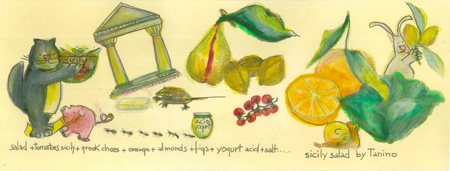 ACID
yogurt
salad + tomatoes sicily + greek chees + orange + almonds + figs + yogurt acid + salt.....
sicily salad by Tanino